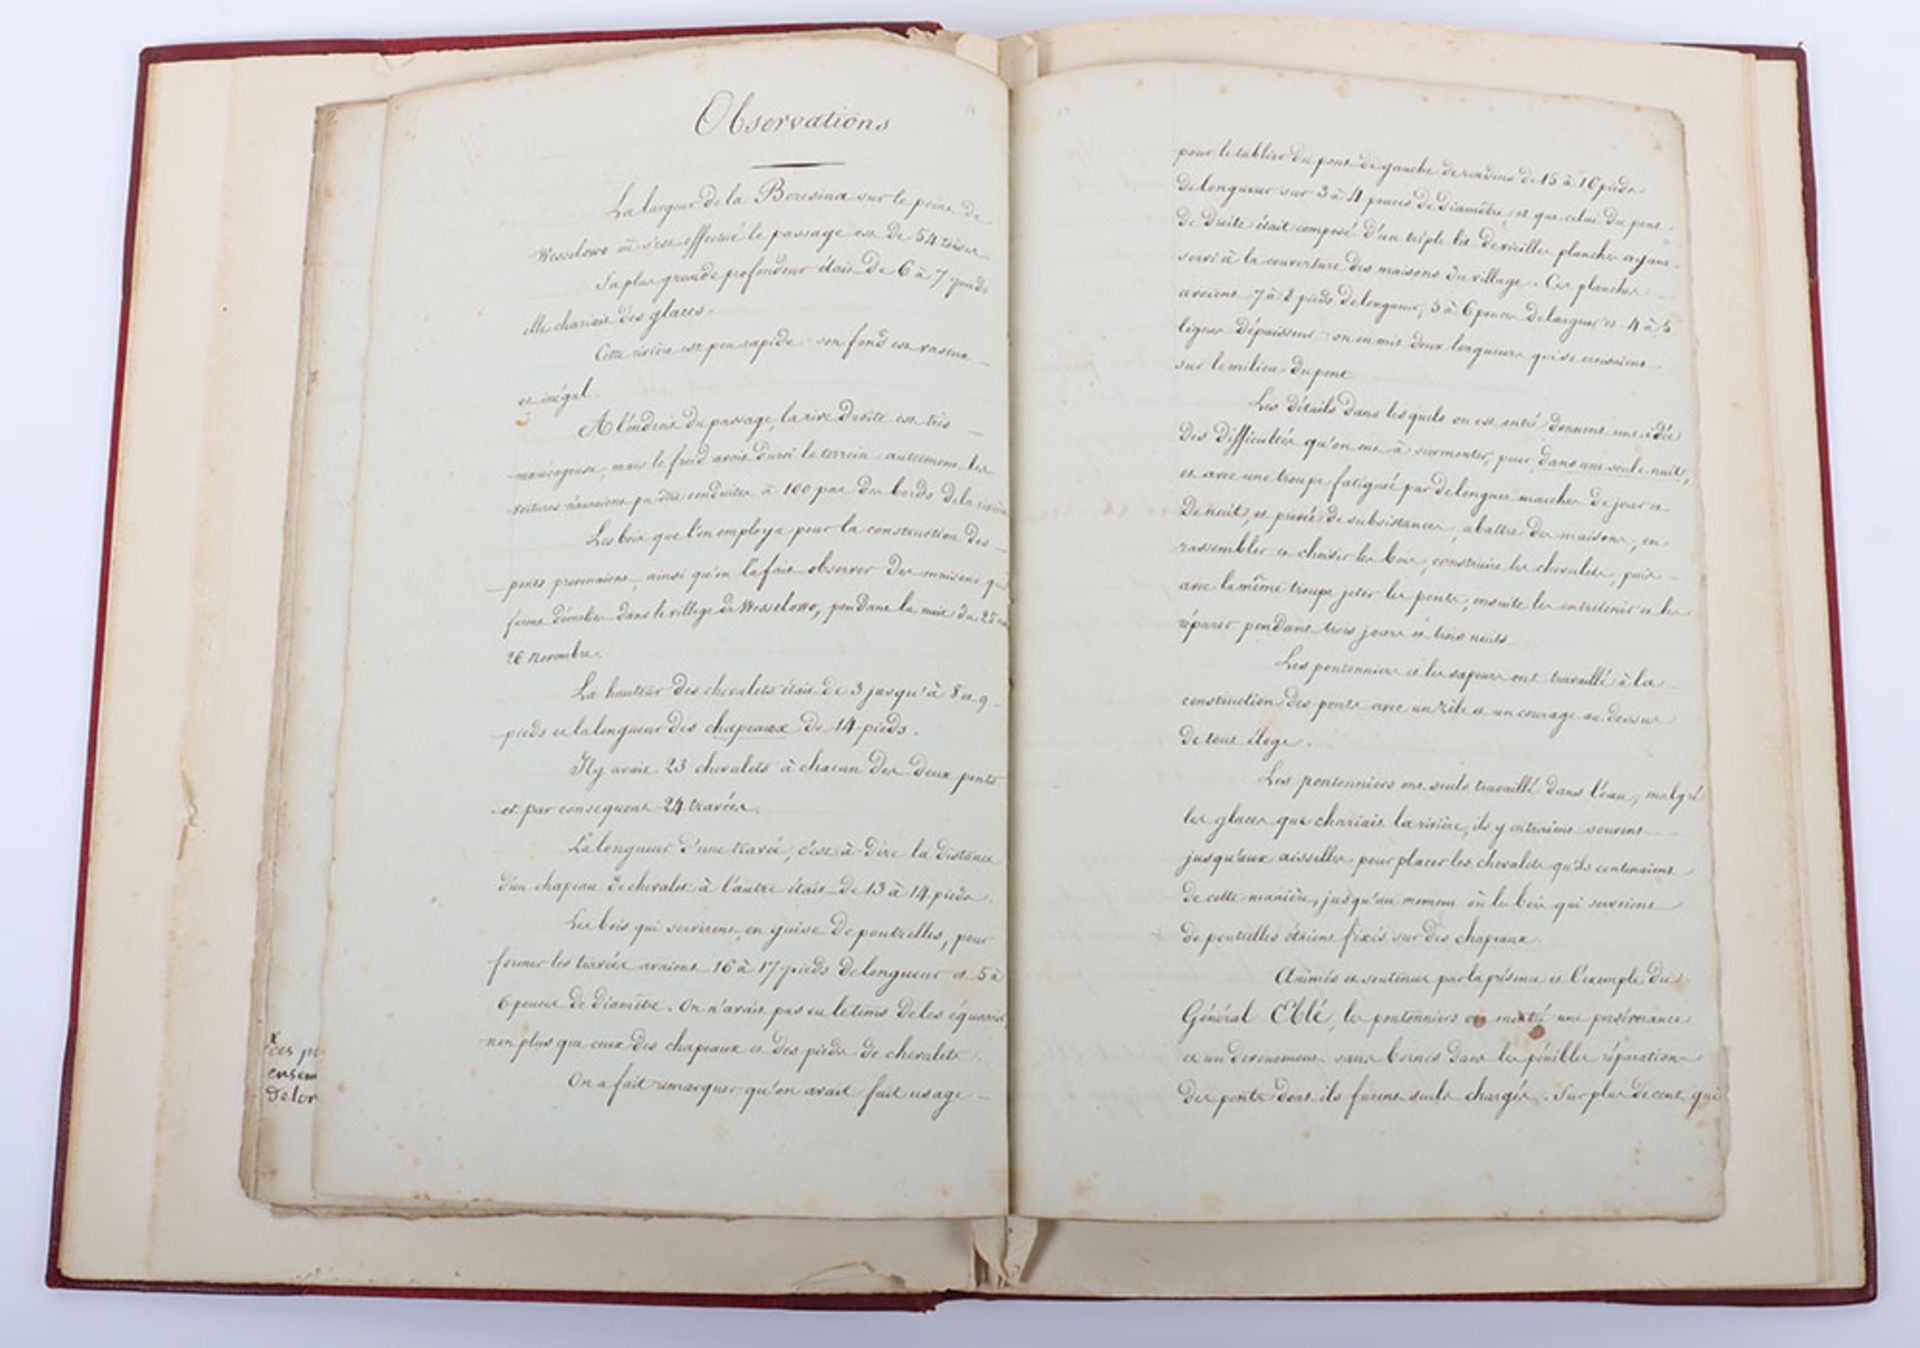 Observations
La largeur de la Beresina sur le point de
Wesselowo où s'est effectué le passage est de 54 toises
Sa plus grande profondeur était de 6 à 7 pieds
elle chariait des glaces.
Cette rivière est peu rapide son fond est vaseux
et inégal.
A l'endroit du passage, la rive droite est très
marécageuse, mais le froid avait durci le terrein autrement les
voitures n'auraient pu être conduites à 100 pas des bords de la rivière
Les bois que l'on employa pour la construction des
ponts provenaient, ainsi qu'on l'a fait observer des maisons qui
furent démolies dans le village de Wesselowo, pendant la nuit du 25 au
26 novembre.
La hauteur des chevalets était de 3 jusqu'à 8 et 9
pieds et la longueur des chapeaux de 14 pieds.
Il y avait 23 chevalets à chacun des deux ponts
et par consequent 24 travées.
La longueur d'une travée, c'est à dire la distance
d'un chapeau de chevalet à l'autre était de 13 à 14 pieds.
Les bois qui servirent en guise de poutrelles, pour
former les travées avaient 16 à 17 pieds de longueur et 5 à
6 pouces de diamètre. On n'avait pas eu le tems de les équarrir,
non plus que ceux des chapeaux et des pieds de chevalets.
On a fait remarquer qu'on avait fait usage
ensem
delor
pour le tablier du pont de gauche de rondins de 15 à 16 pieds
de longueur sur 3 à 4 pouces de diamètre et que celui du pont
de droite était composé d'un triple lit de vieilles planches ayant
servi à la couverture des maisons du village. Ces planches
avaient 7 à 8 pieds de longueur, 5 à 6 pouces de largeur et 4 à 5
lignes d'épaisseur on en mit deux longueurs qui se croisaient
sur le milieu du pont
Les détails dans lesquels on est entré donnent une idée
des difficultés qu'on eut à surmonter, pour, dans une seule nuit,
et avec une troupe fatiguée par de longues marches de jour et
de nuit, et privée de subsistances, abattre des maisons, en
rassembler et choisir les bois, construire les chevalets, puis
avec la même troupe jeter les ponts, ensuite les entretenir et les
réparer pendant trois jours et trois nuits.
Les pontonniers et les sapeurs ont travaillé à la
construction des ponts avec un zèle et un courage au dessus
de tout éloge.
Les pontonniers ont seuls travaillé dans l'eau, malgré
les glaces que chariait la rivière, ils y entraient souvent
jusqu'aux aisselles pour placer les chevalets qu'ils contenaient
de cette manière, jusqu'au moment où les bois qui servaient
de poutrelles étaient fixés sur des chapeaux.
Animés et soutenus par la présence et l'exemple du
Général Eblé, les pontonniers ont montré une persévérance
et un dévouement sans bornes dans les pénibles réparations
des ponts dont ils furent seuls chargés. Sur plus de cent qui